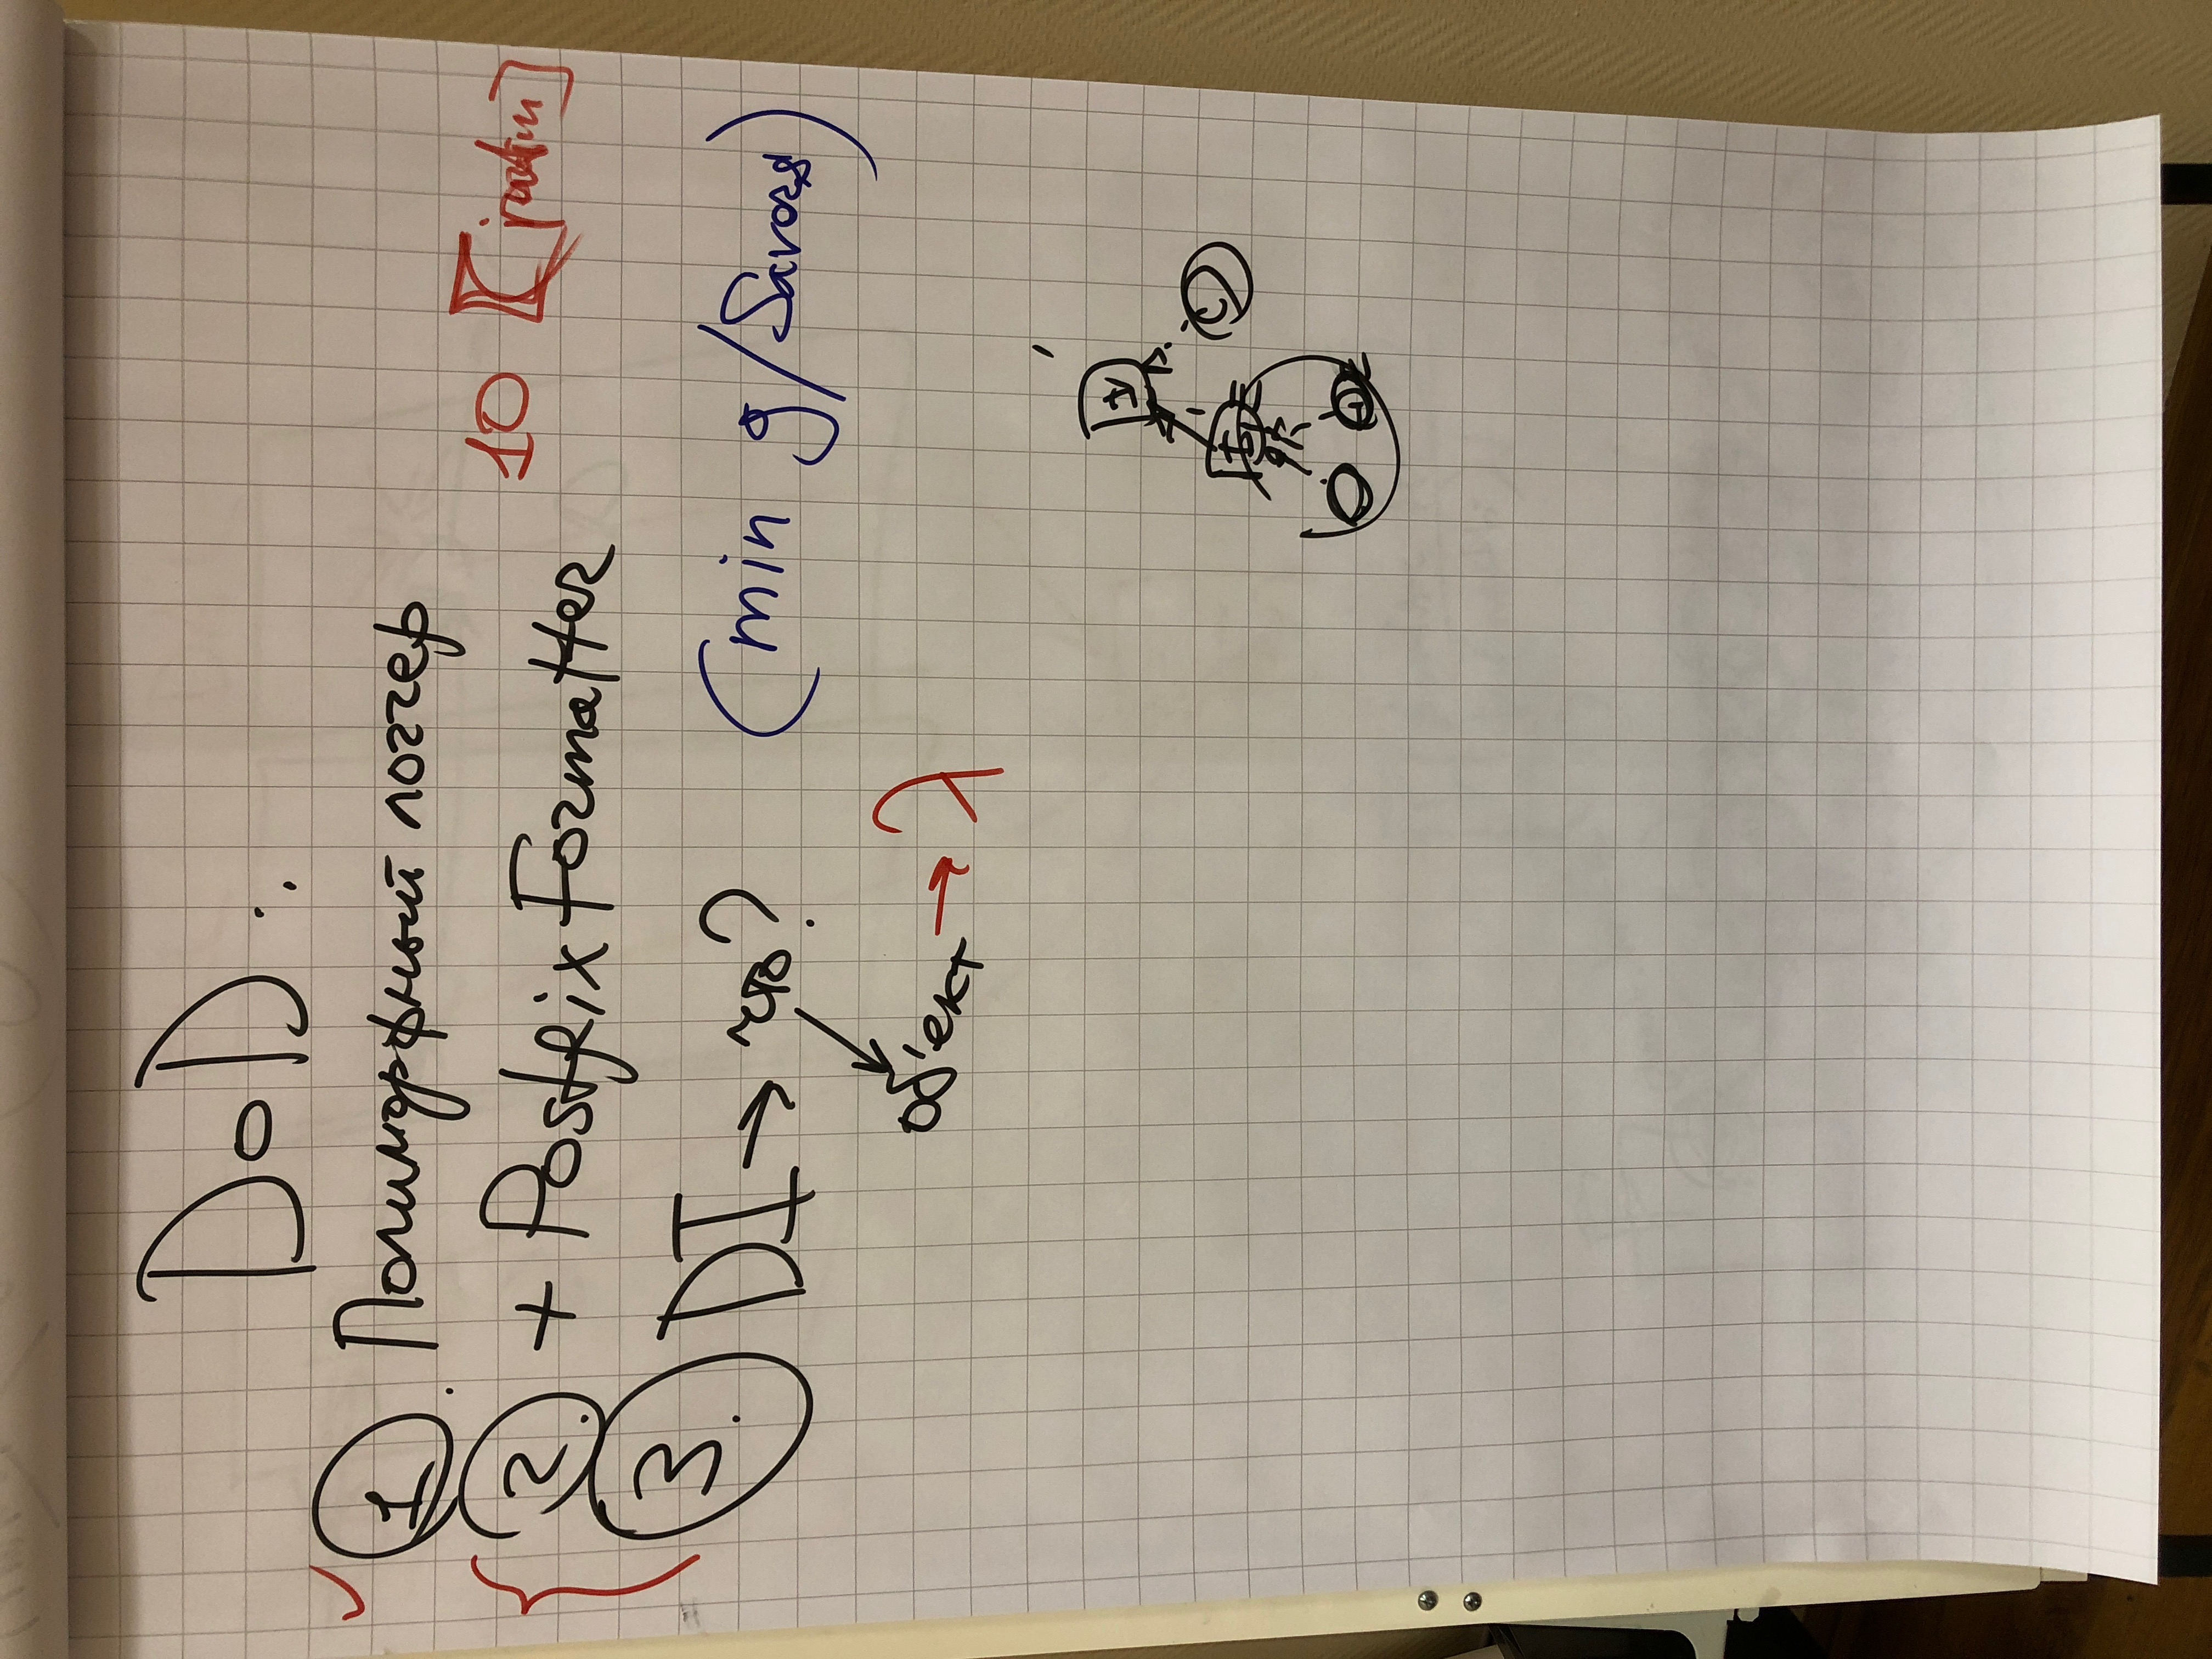 DoD:
1. Полиморфный логгер
2. + PostfixFormatter
10 [
3. DI → что? (min g/Savors)
об'ект → λ